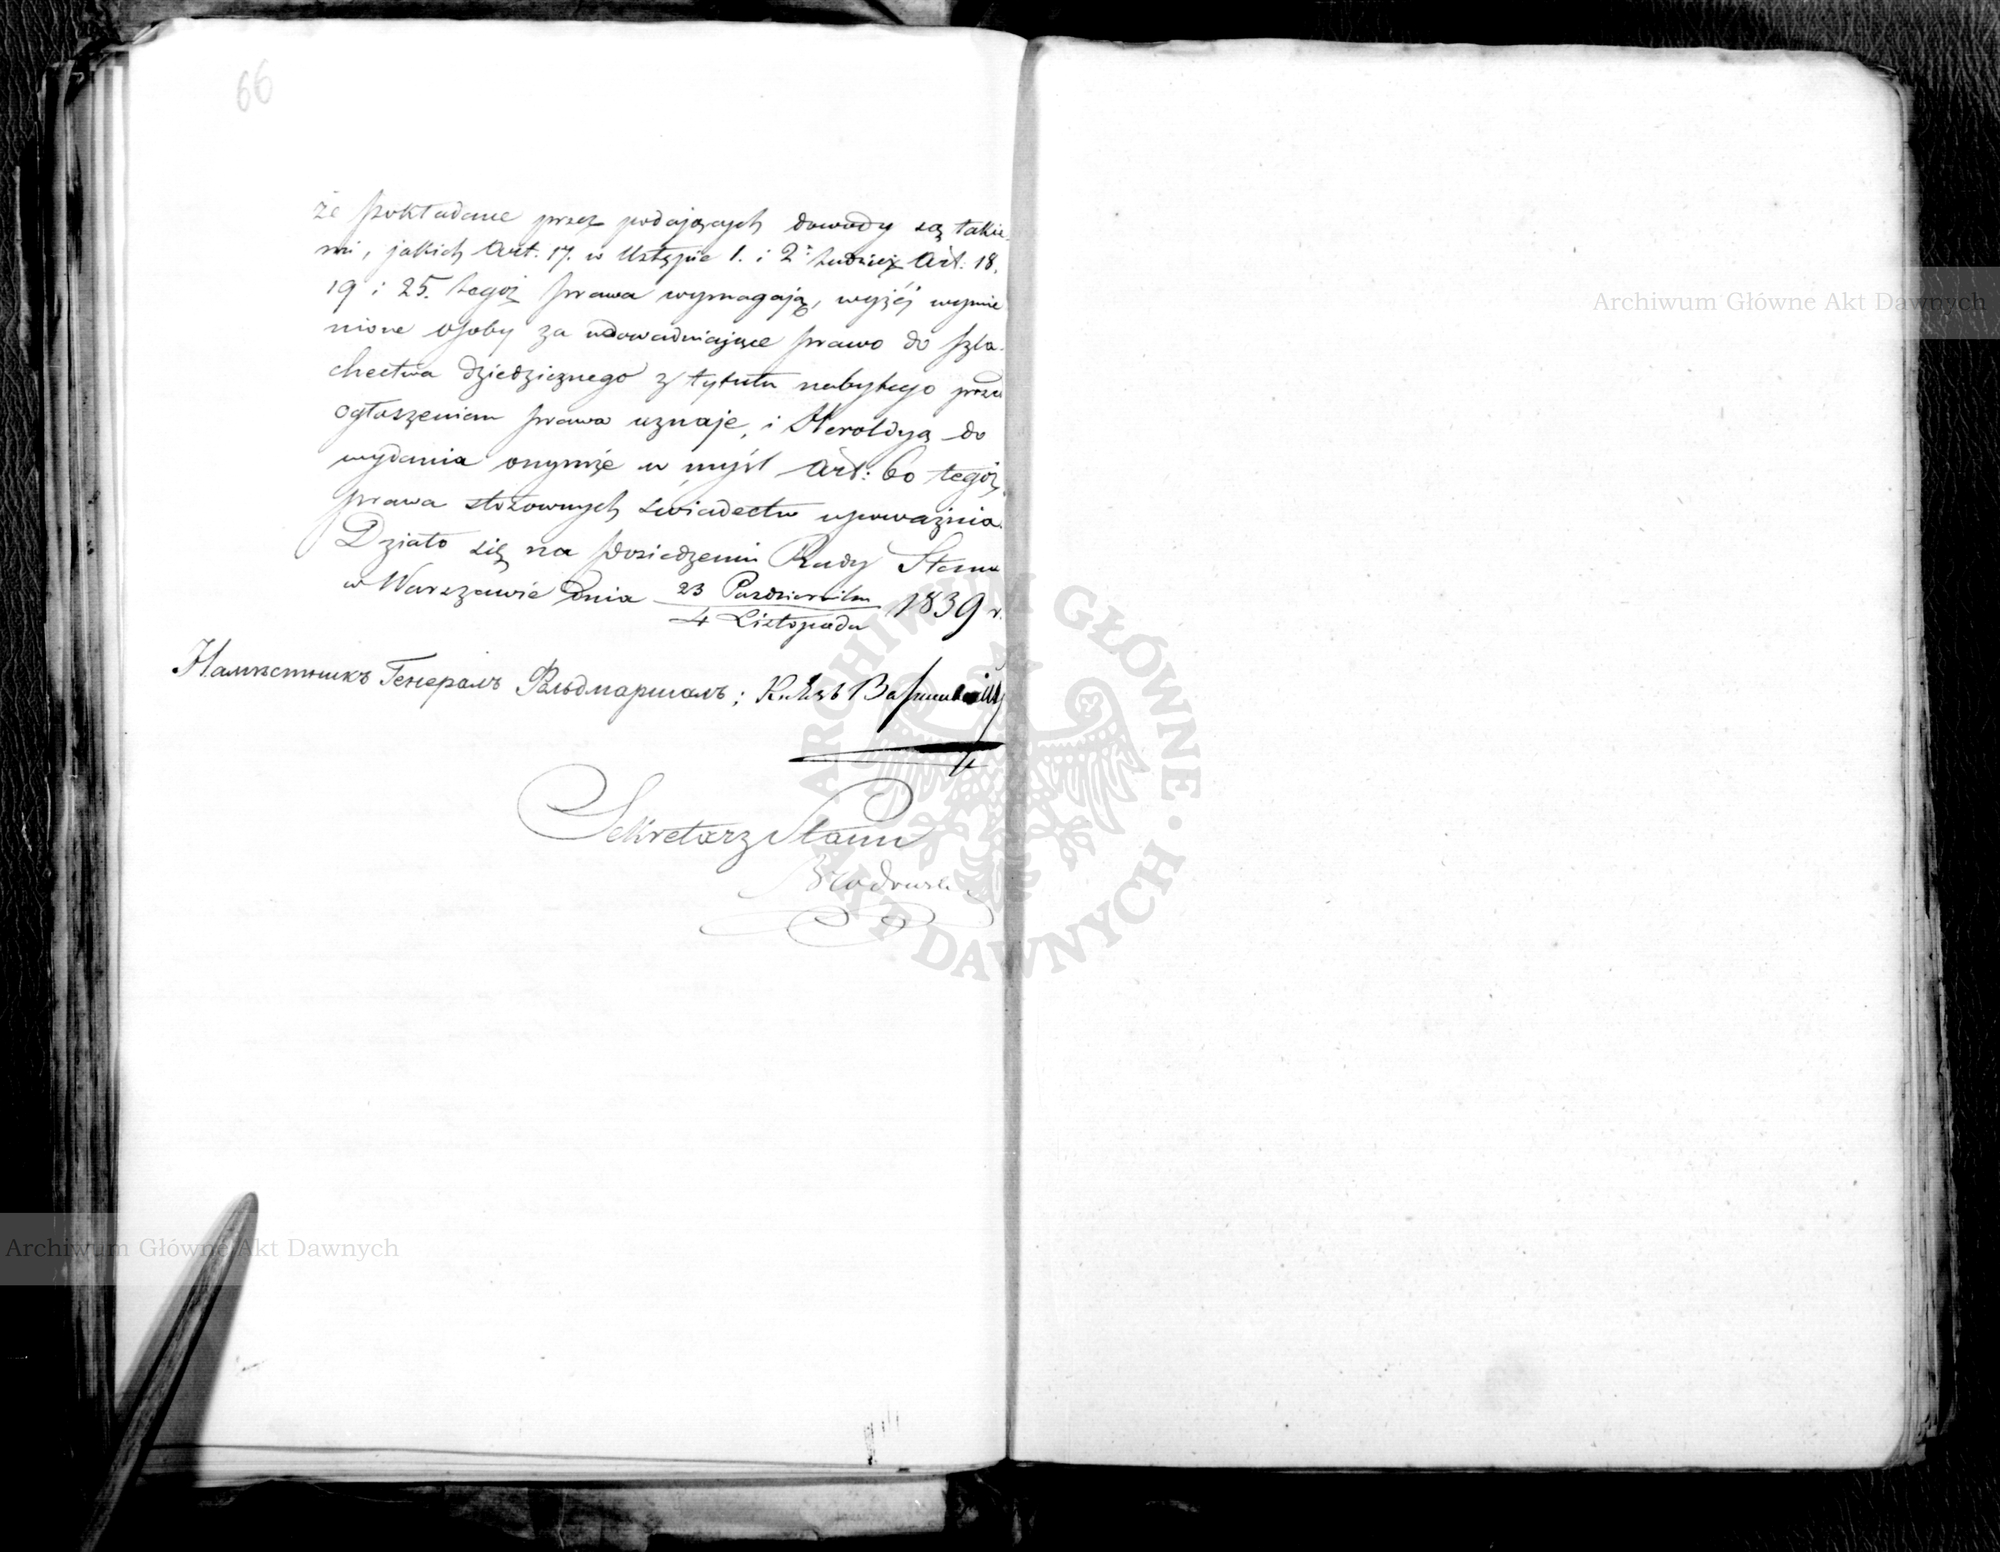 66
że pokładane przez podających dowody są takie
mi, jakich Art. 17. w Ustępie 1. i 2. tudzież Art. 18.
19 i 25. tegoż prawa wymagają, wyżéj wymie
nione osoby za udowadniające prawo do szla-
chectwa dziedzicznego z tytułu nabytego przed
ogłoszeniem prawa uznaje, i Heroldyą do
wydania onymże w myśl Art: 60 tegoż
prawa stosownych świadectw upoważnia.
Działo się na posiedzeniu Rady Stanu
w Warszawie dnia 23 Października 1839 r.
4 Listopada
Намѣстникъ Генералъ Фельдмаршалъ; Князь Варшавскій
Sekretarz Stanu
Archiwum Główne Akt Dawnych
Archiwum Główne Akt Dawnych
ARCHIWUM GŁÓWNE AKT DAWNYCH